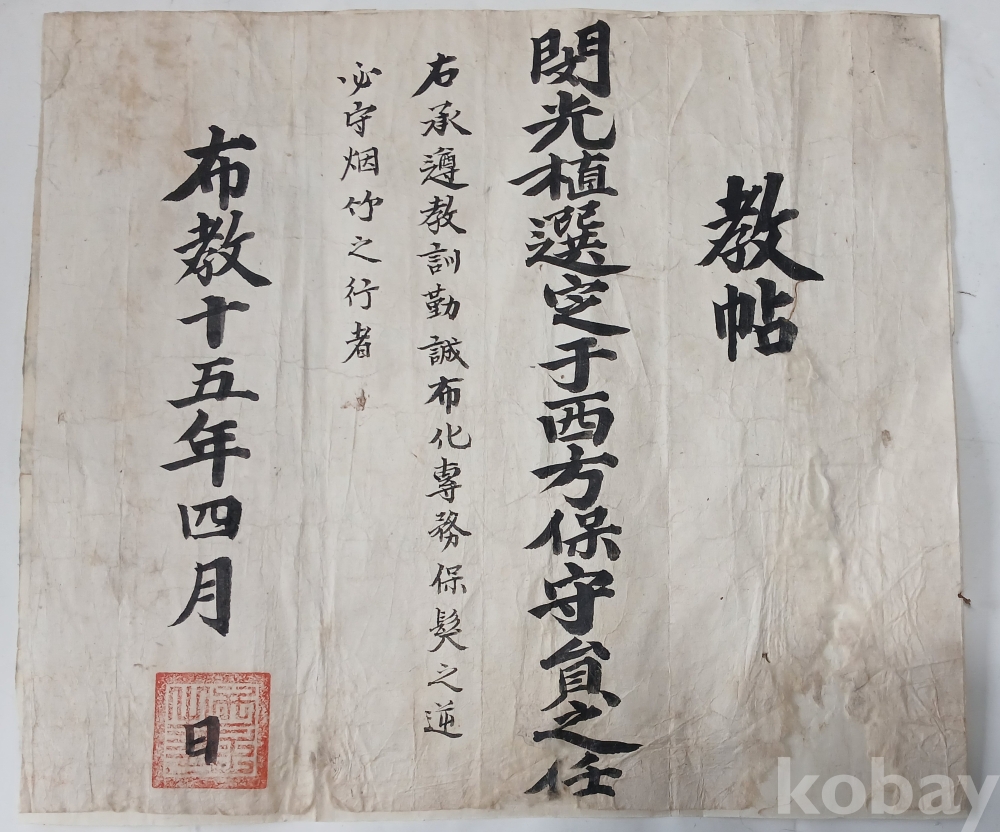 教帖
閔光植選定于西方保守員之任
右承遵教訓勤誠布化專務保髮之道
必守烟竹之行者
布教十五年四月 日
kobay